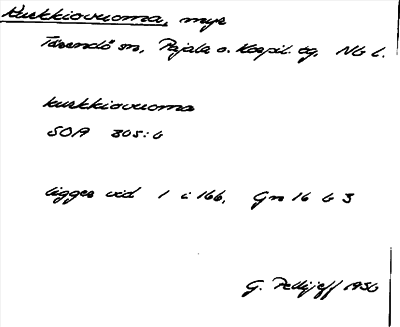 Kurkkiovuoma, myr
Tärendö sn, Pajala o. Korpil. tg. Nb l.
kurkkiovuoma
SOA 305:6
ligger vid 1 i 166, Gn 16 b 3
G. Pellijeff 1956